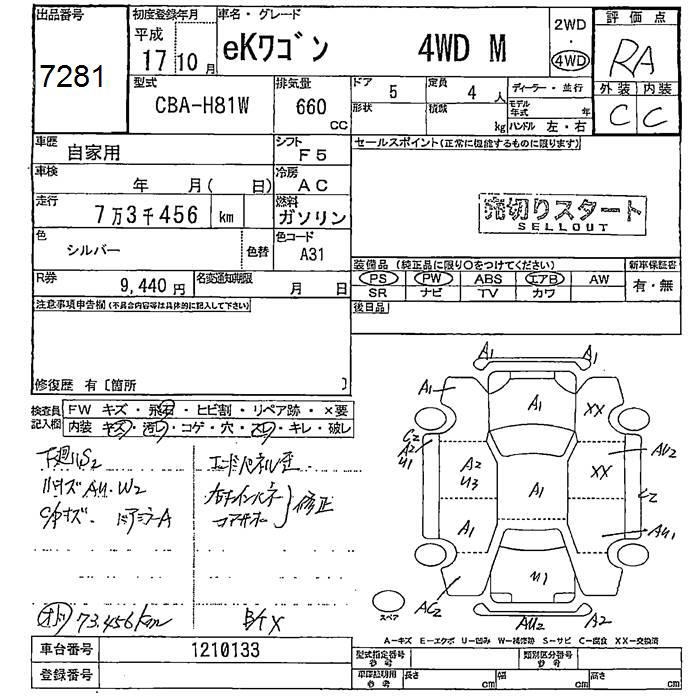 出品番号 初度登録年月 車名・グレード 評価点
7281 平成 17 10月 eKワゴン 4WD M 2WD・4WD RA
型式 排気量 ドア 定員 ディーラー・並行 外装 内装
CBA-H81W 660 CC 5 4人 C C
形状 積載 kg モデル年式 年
ハンドル 左・右
車歴 自家用 シフト F5 セールスポイント(正常に機能するものに限ります)
車検 年 月( 日) 冷房 AC
走行 7万3千456 km 燃料 ガソリン
売切りスタート
SELLOUT
色 シルバー 色替 色コード A31
装備品(純正品に限り○をつけてください) 新車保証書
R券 9,440円 名変通知期限 月 日
PS PW ABS エアB AW 有・無
SR ナビ TV カワ
注意事項申告欄(不具合内容等は具体的に記入して下さい)
後日品
修復歴 有〔箇所 〕
検査員記入欄 FW キズ・飛石・ヒビ割・リペア跡・×要
内装 キズ・汚レ・コゲ・穴・スレ・キレ・破レ
下廻りS2
AU・W2
ドアミラーA
エンドパネル歪
コアサポ
修正
オド 73,456km
A1 A1
A1 A1 XX
C2 A2 U1
A2 U3 XX AU2
A1 C2
A1 AU1
U1
AC2 AU2 A2
スペア
A-キズ E-エクボ U-凹み W-補修跡 S-サビ C-腐食 XX-交換済
車台番号 1210133
型式指定番号 参考 類別区分番号 参考
登録番号
車庫証明用 参考 長さ cm 幅 cm 高さ cm